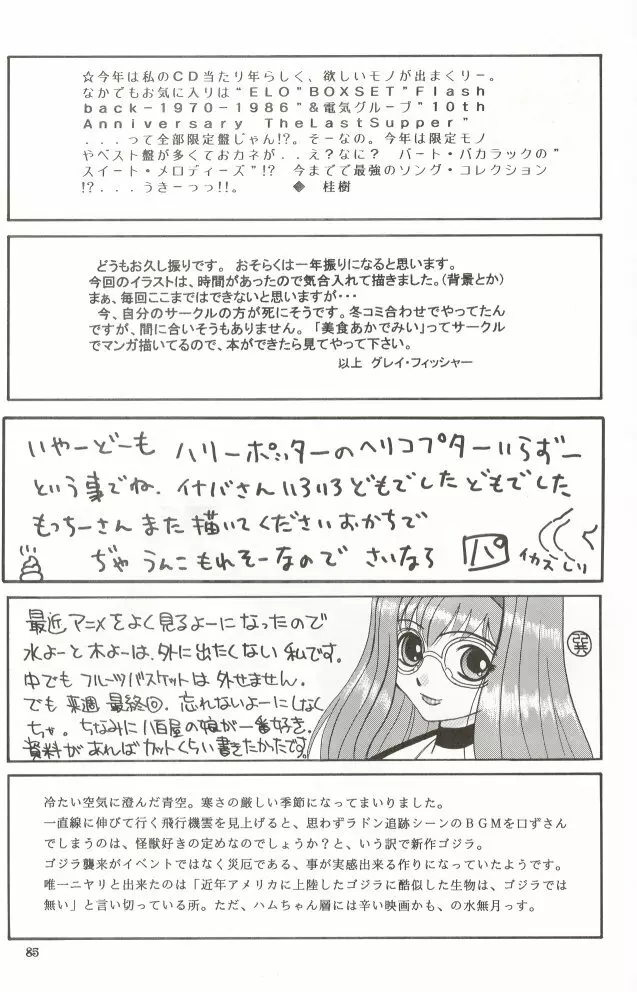 ☆今年は私のCD当たり年らしく、欲しいモノが出まくりー。
なかでもお気に入りは“ELO”BOXSET”Flash
back－1970－1986”＆電気グループ”10th
Anniversary TheLastSupper”
．．．って全部限定盤じゃん!?。そーなの。今年は限定モノ
やベスト盤が多くておカネが．．え？なに？ バート・バカラックの”
スイート・メロディーズ”!? 今までで最強のソング・コレクション
!?．．．うきーっっ!!。 ◆ 桂樹
どうもお久し振りです。おそらくは一年振りになると思います。
今回のイラストは、時間があったので気合入れて描きました。(背景とか)
まぁ、毎回ここまではできないと思いますが・・・
今、自分のサークルの方が死にそうです。冬コミ合わせでやってたん
ですが、間に合いそうもありません。「美食あかでみい」ってサークル
でマンガ描いてるので、本ができたら見てやって下さい。
以上 グレイ・フィッシャー
いやーどーも ハリーポッターのヘリコプターいらずー
という事でね、イナバさんいろいろどもでしたどもでした
もっちーさんまた描いてくださいおかちで
ぢゃうんこもれそーなので さいなら パ イカズしり
最近アニメをよく見るよーになったので
水よーと木よーは、外に出たくない私です。
中でもフルーツバスケットは外せません。
でも来週最終回。忘れないよーにしなく
ちゃ。ちなみに八百屋の娘が一番好き。
資料があればカットくらい書きたかったです。
冷たい空気に澄んだ青空。寒さの厳しい季節になってまいりました。
一直線に伸びて行く飛行機雲を見上げると、思わずラドン追跡シーンのＢＧＭを口ずさん
でしまうのは、怪獣好きの定めなのでしょうか？と、いう訳で新作ゴジラ。
ゴジラ襲来がイベントではなく災厄である、事が実感出来る作りになっていたようです。
唯一ニヤリと出来たのは「近年アメリカに上陸したゴジラに酷似した生物は、ゴジラでは
無い」と言い切っている所。ただ、ハムちゃん層には辛い映画かも、の水無月っす。
85